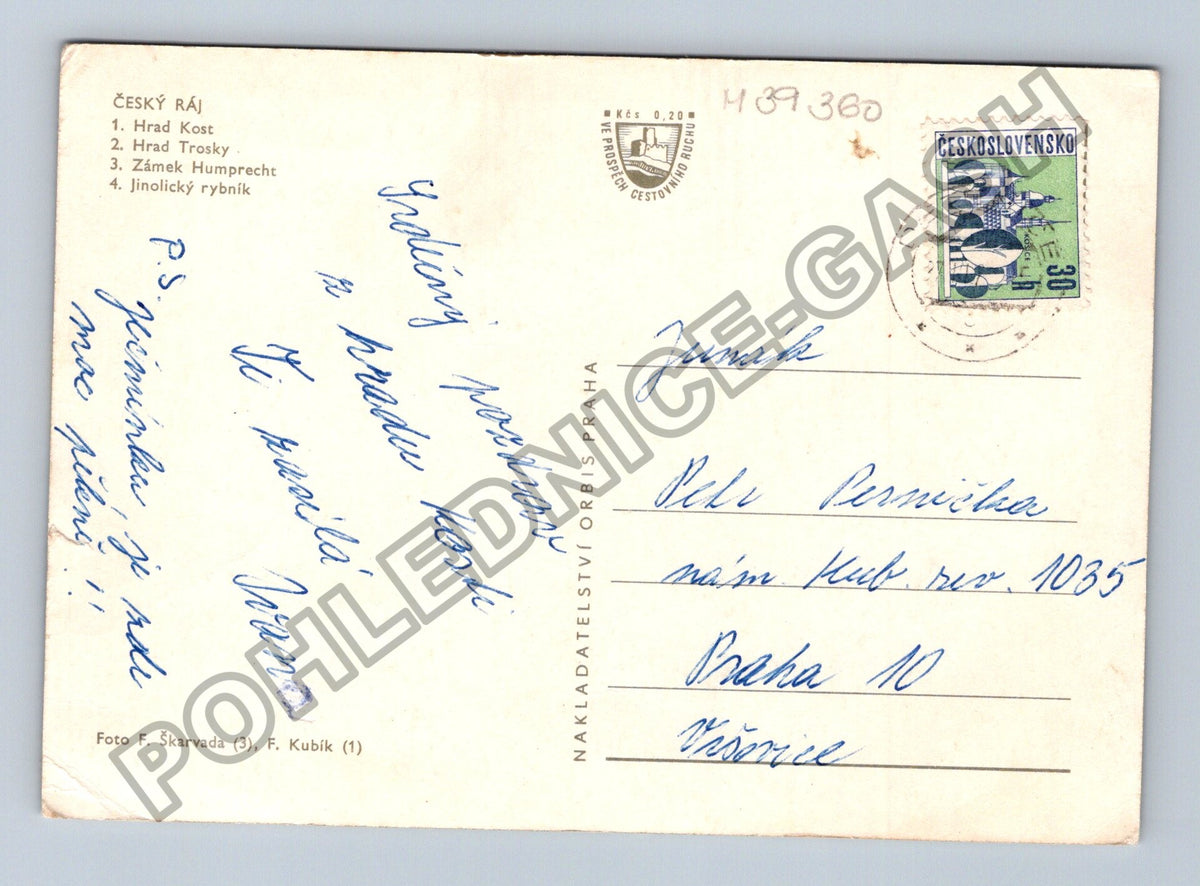 ČESKÝ RÁJ
1. Hrad Kost
2. Hrad Trosky
3. Zámek Humprecht
4. Jinolický rybník
Kčs 0,20
VE PROSPĚCH CESTOVNÍHO RUCHU
M 39 360
ČESKOSLOVENSKO
30 h
Srdečný pozdrav
z hradu Kosti
Ti zasílá
Ivana
P.S. je zde
moc pěkně!!
NAKLADATELSTVÍ ORBIS PRAHA
Junák
Petr Pernička
nám. Kub. rev. 1035
Praha 10
Vršovice
Foto F. Škarvada (3), F. Kubík (1)
POHLEDNICE-GASH